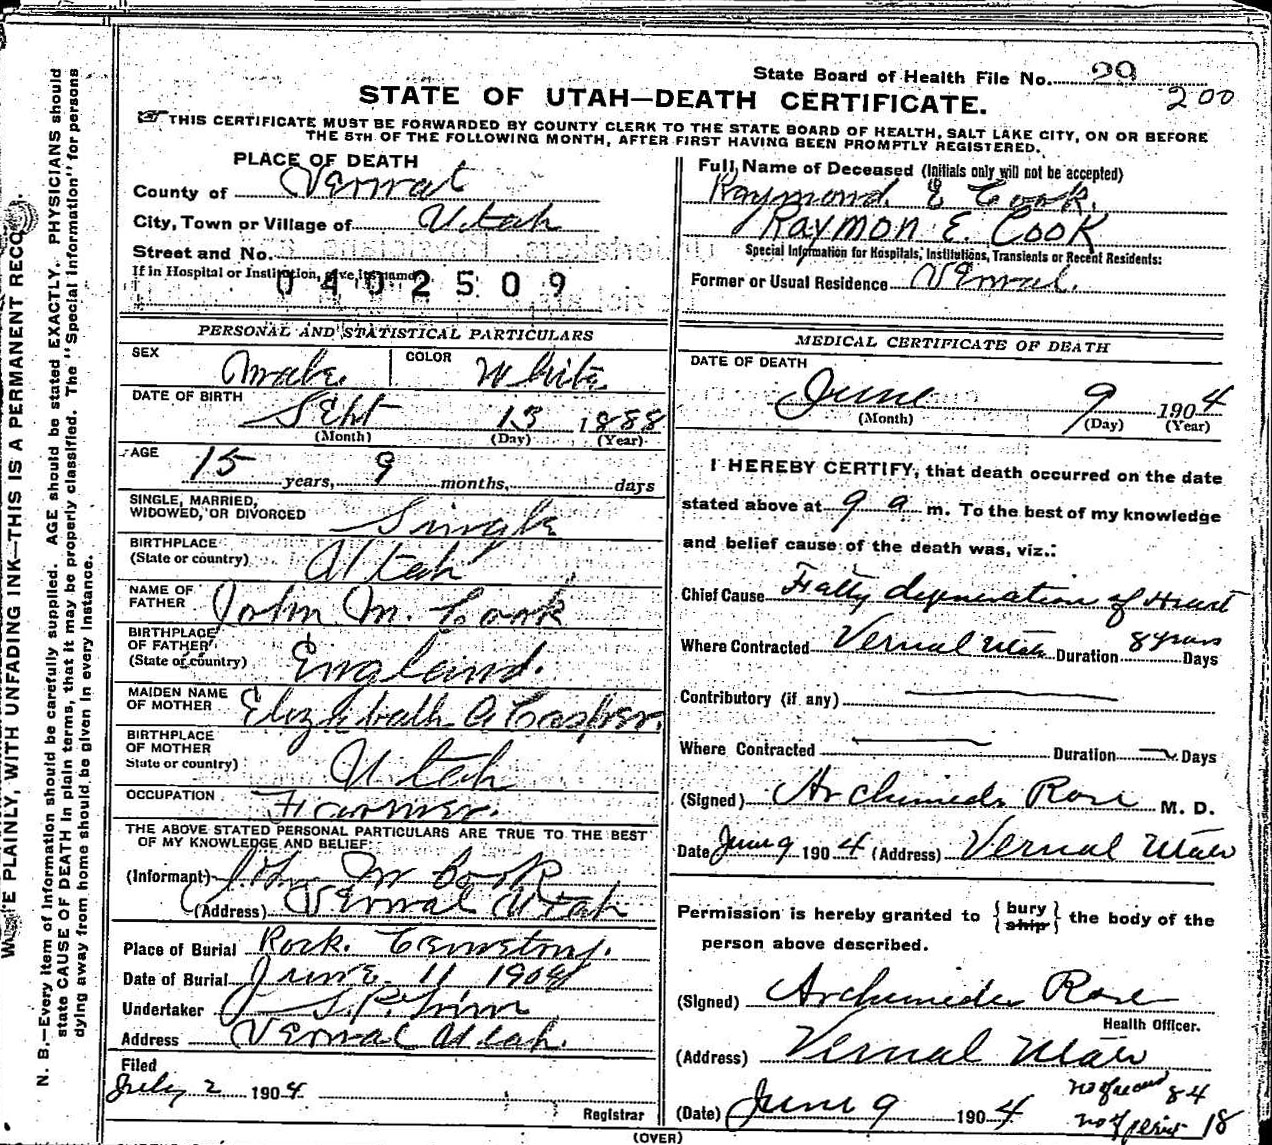 State Board of Health File No. 29
200
STATE OF UTAH—DEATH CERTIFICATE.
THIS CERTIFICATE MUST BE FORWARDED BY COUNTY CLERK TO THE STATE BOARD OF HEALTH, SALT LAKE CITY, ON OR BEFORE
THE 5TH OF THE FOLLOWING MONTH, AFTER FIRST HAVING BEEN PROMPTLY REGISTERED.
PLACE OF DEATH
County of Vernal
City, Town or Village of Utah
Street and No.
If in Hospital or Institution, give its name
0402509
PERSONAL AND STATISTICAL PARTICULARS
SEX Male COLOR White
DATE OF BIRTH Sept 13 1888
(Month) (Day) (Year)
AGE
15 years, 9 months, days
SINGLE, MARRIED,
WIDOWED, OR DIVORCED Single
BIRTHPLACE
(State or country) Utah
NAME OF
FATHER John M. Cook
BIRTHPLACE
OF FATHER
(State or country) England.
MAIDEN NAME
OF MOTHER Elizabeth A Casper.
BIRTHPLACE
OF MOTHER
State or country) Utah
OCCUPATION Farmer.
THE ABOVE STATED PERSONAL PARTICULARS ARE TRUE TO THE BEST
OF MY KNOWLEDGE AND BELIEF
(Informant) John M Cook
(Address) Vernal Utah
Place of Burial Rock. Cemetery.
Date of Burial June 11 1904
Undertaker
Address Vernal Utah.
Filed
July 2 1904
Registrar
Full Name of Deceased (Initials only will not be accepted)
Raymond E Cook.
RAYMON E. COOK
Special Information for Hospitals, Institutions, Transients or Recent Residents:
Former or Usual Residence Vernal.
MEDICAL CERTIFICATE OF DEATH
DATE OF DEATH
June 9 1904
(Month) (Day) (Year)
I HEREBY CERTIFY, that death occurred on the date
stated above at 9 a m. To the best of my knowledge
and belief cause of the death was, viz.:
Chief Cause Fatty degeneration of Heart
Where Contracted Vernal Utah Duration 8 years Days
Contributory (if any)
Where Contracted Duration Days
(Signed) Archimedes Rose M. D.
Date June 9 1904 (Address) Vernal Utah
Permission is hereby granted to {bury ship} the body of the
person above described.
(Signed) Archimedes Rose
Health Officer.
(Address) Vernal Utah
(Date) June 9 1904
no of record 84
no of permit 18
(OVER)
WRITE PLAINLY, WITH UNFADING INK—THIS IS A PERMANENT RECORD.
N. B.—Every item of information should be carefully supplied. AGE should be stated EXACTLY. PHYSICIANS should
state CAUSE OF DEATH in plain terms, that it may be properly classified. The "Special Information" for persons
dying away from home should be given in every instance.